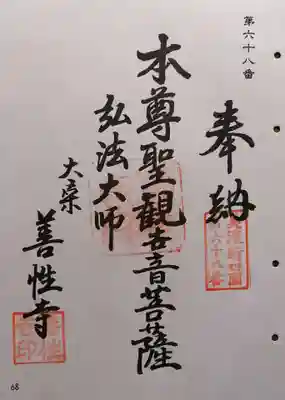 第六十八番
奉納
本尊聖観世音菩薩
弘法大師
大桑
善性寺
68